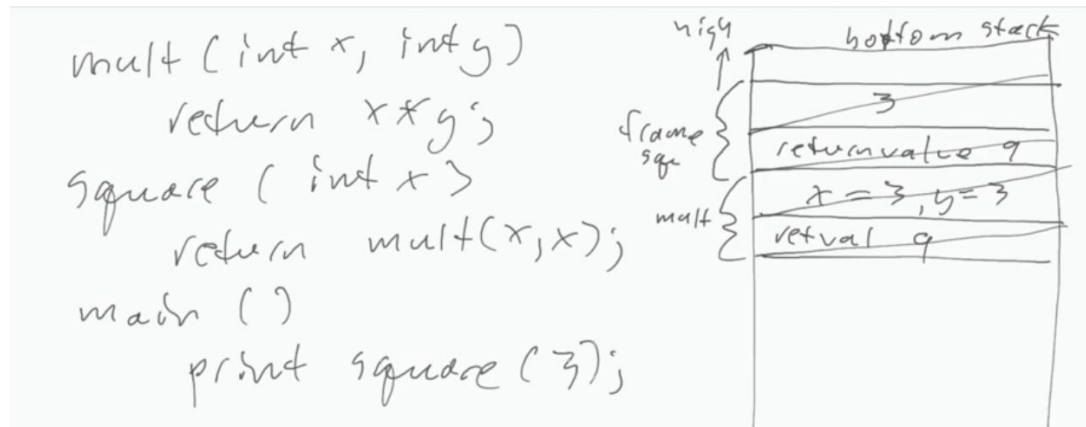 mult (int x, int y)
return x*y;
square (int x)
return mult(x,x);
main ()
print square (3);
high
bottom stack
3
frame
squ
return value 9
x = 3, y = 3
mult
retval 9